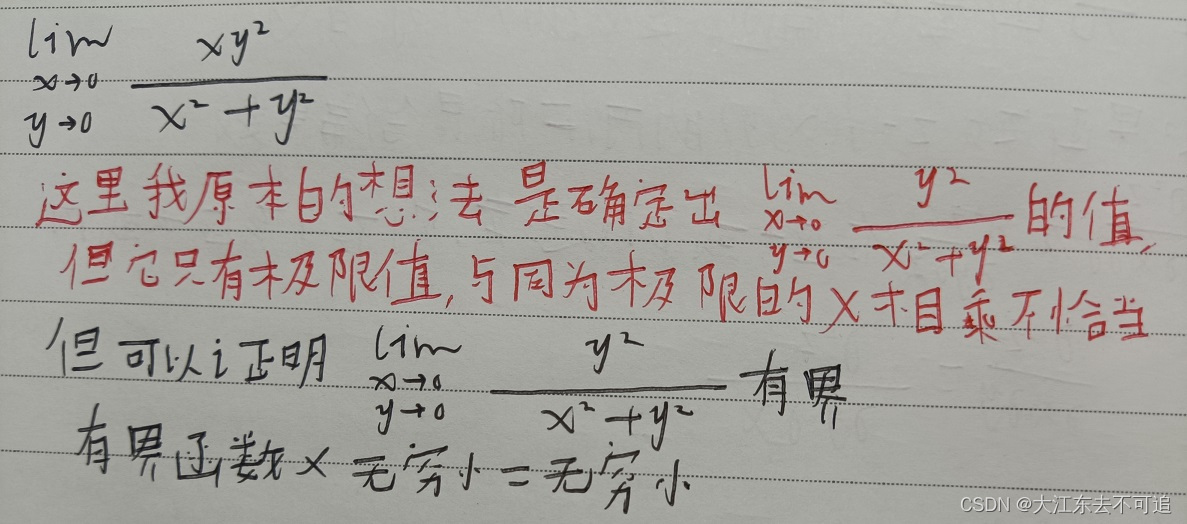 lim x→0 y→0 xy²/(x²+y²)
这里我原本的想法是确定出 lim x→0 y→0 y²/(x²+y²) 的值,
但它只有极限值,与同为极限的x相乘不恰当
但可以证明 lim x→0 y→0 y²/(x²+y²) 有界
有界函数×无穷小=无穷小
CSDN @大江东去不可追